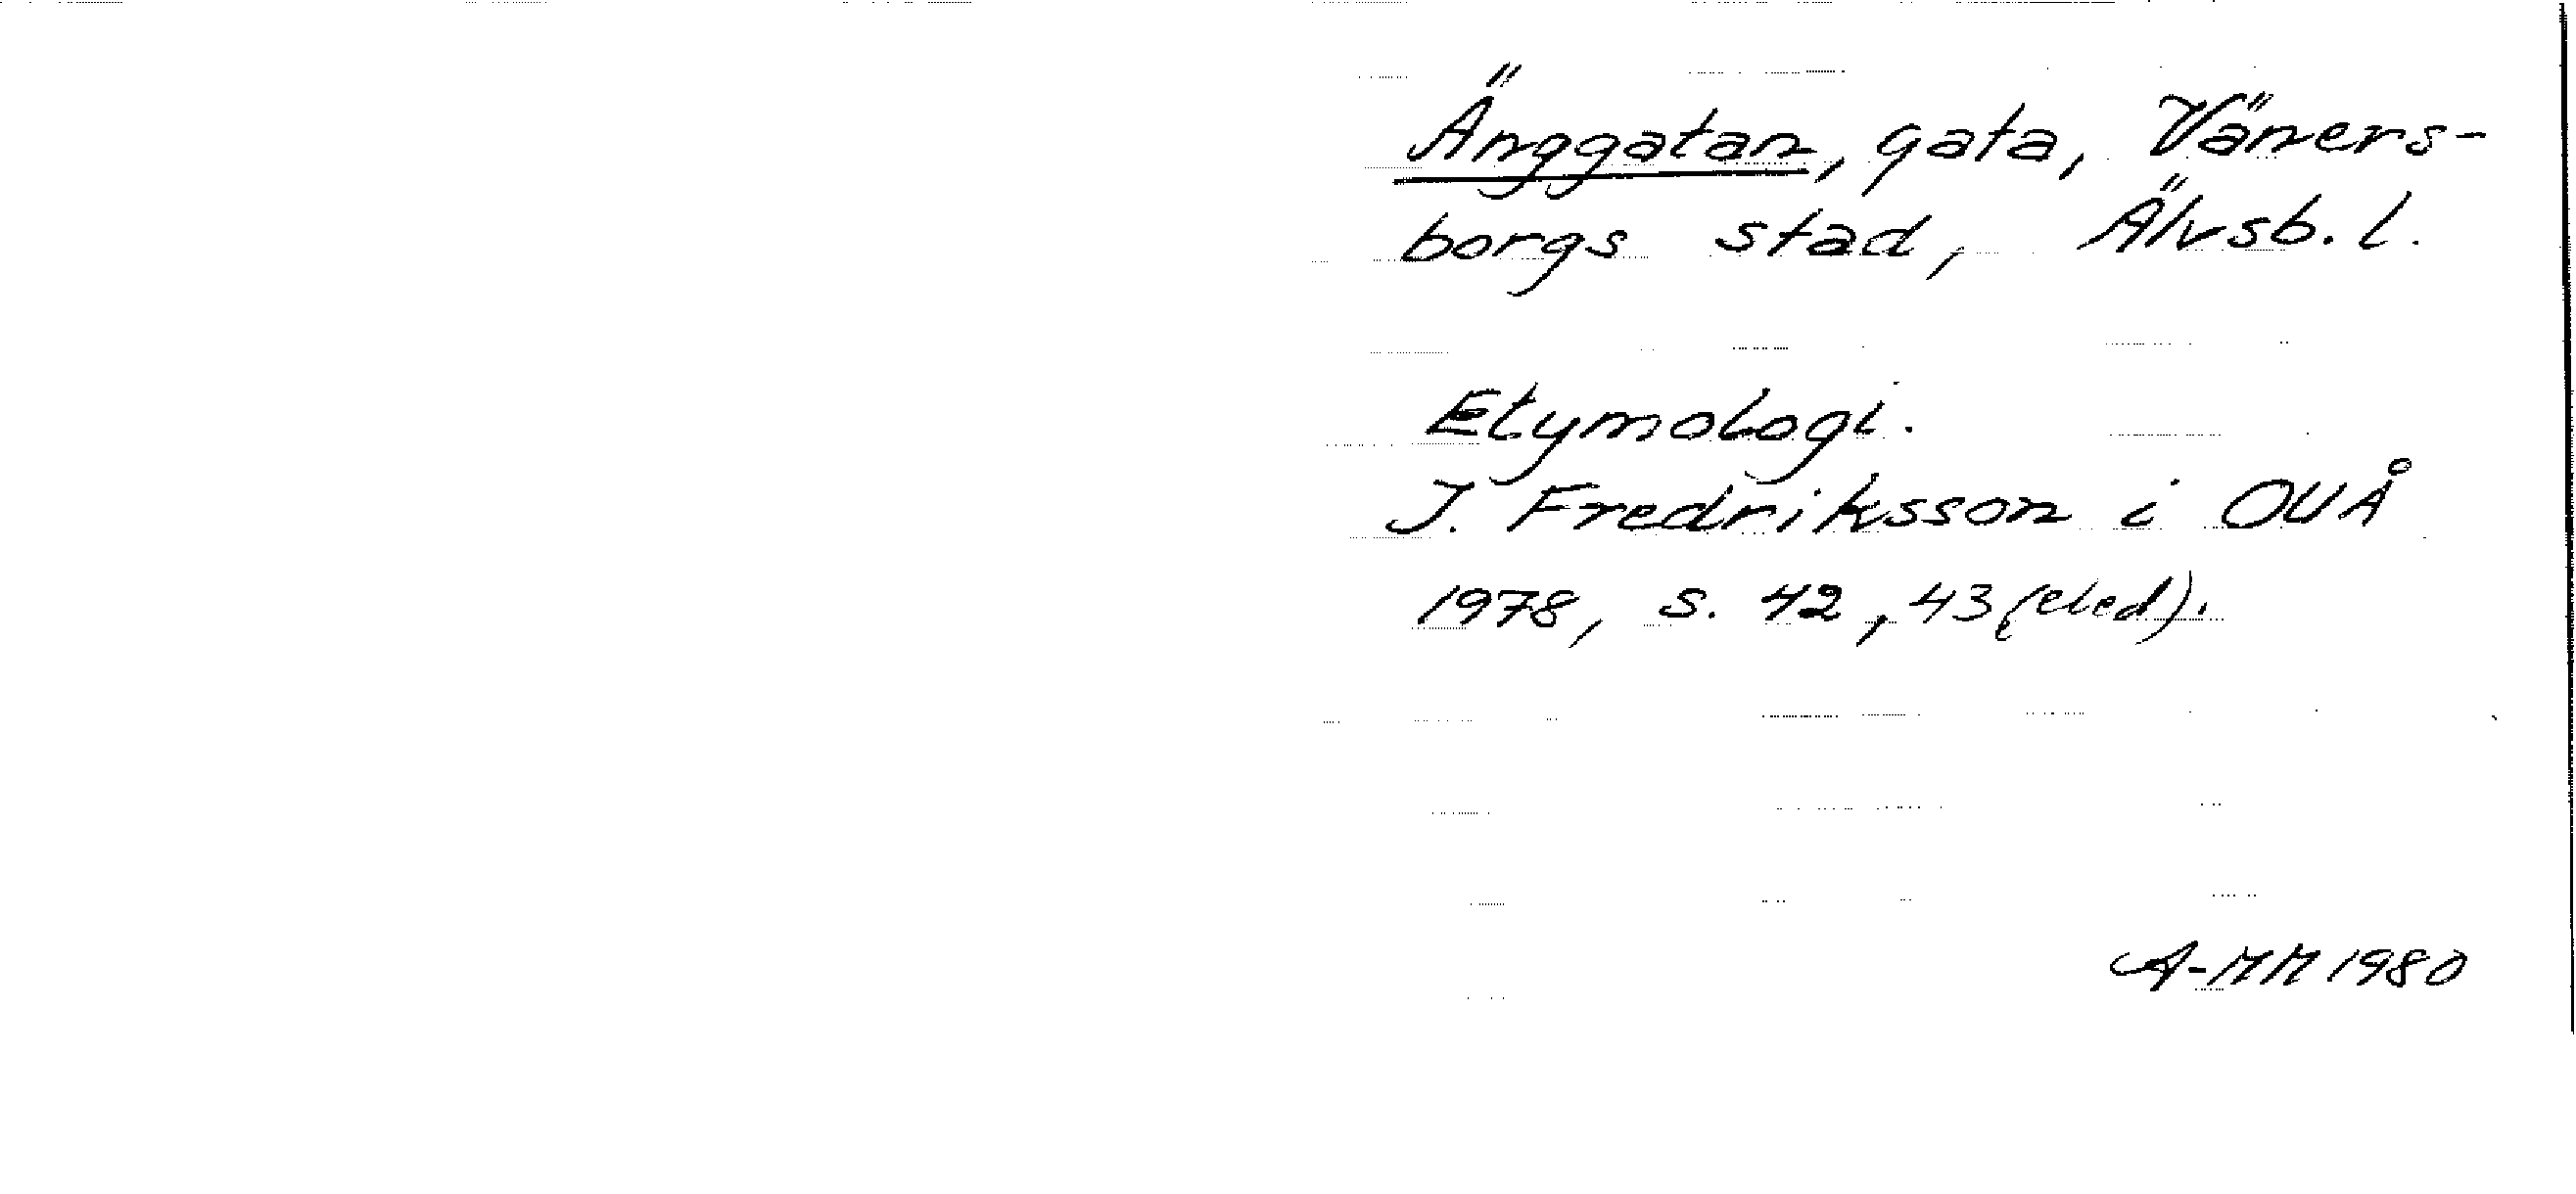 Änggatan, gata, Väners-
borgs stad, Älvsb. l.
Etymologi.
J. Fredriksson i OUÅ
1978, s. 42, 43 (eled).
A-MM 1980